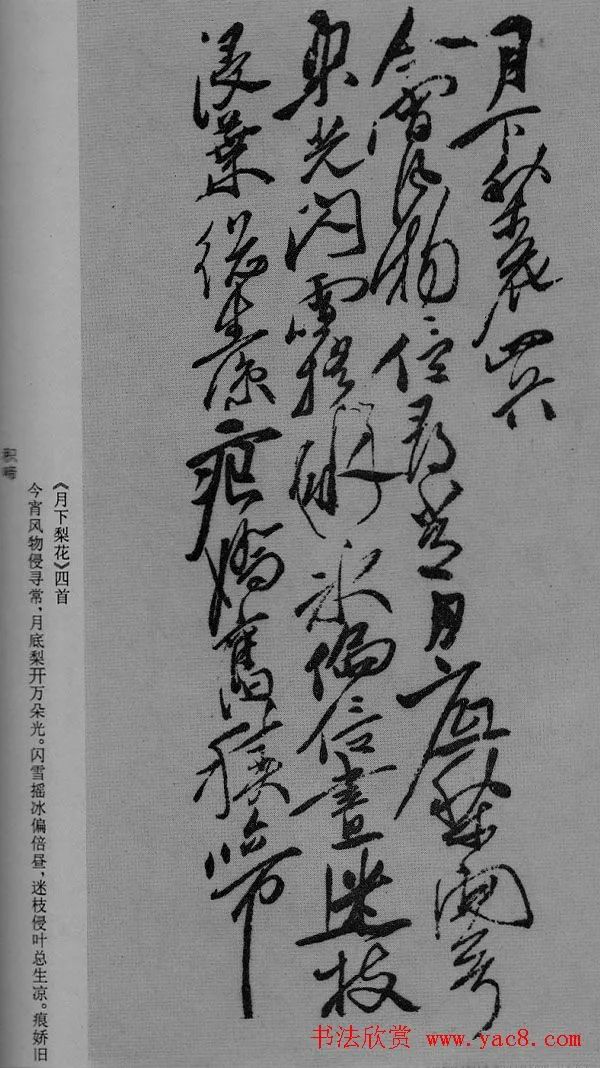 月下梨花四首
今宵風物侵尋常月底梨開万
朵光閃雪搖冰偏倍晝迷枝
侵葉總生涼痕嬌舊積啼
《月下梨花》四首
今宵风物侵寻常，月底梨开万朵光。闪雪摇冰偏倍昼，迷枝侵叶总生凉。痕娇旧
积啼
书法欣赏 www.yac8.com